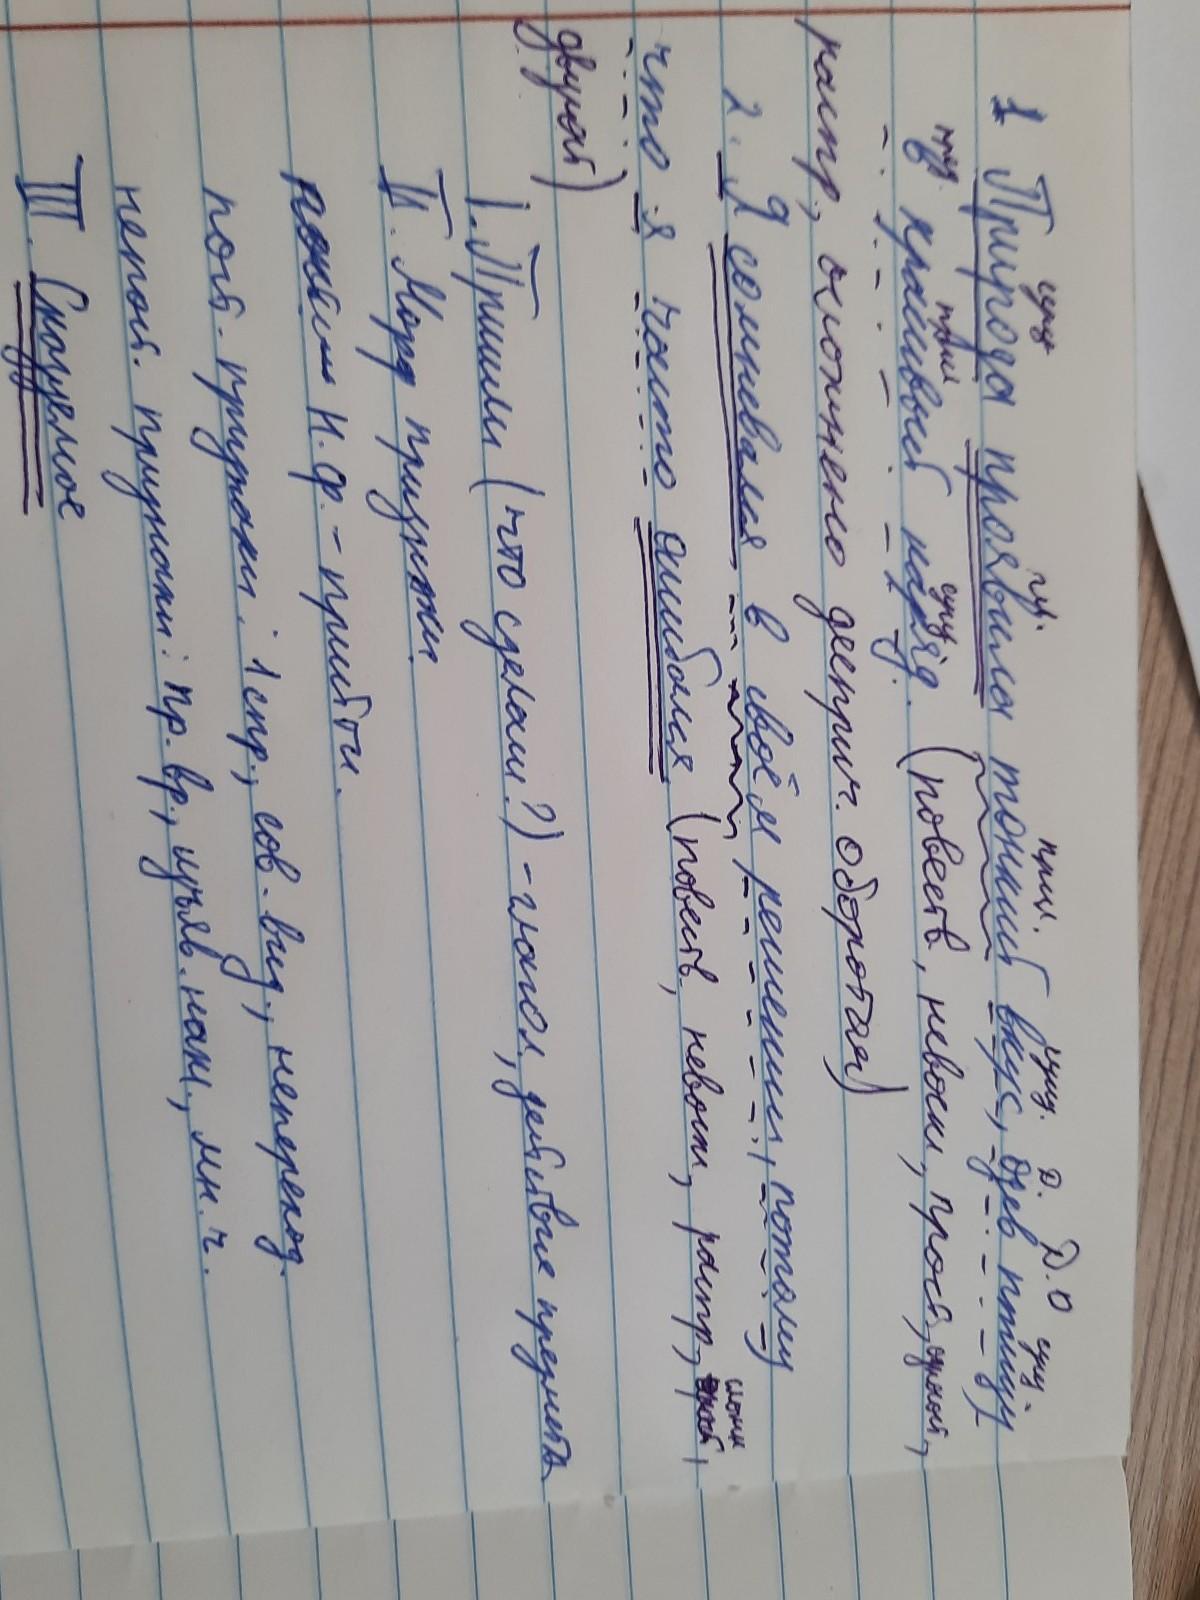 сущ. гл. прил. сущ. Д. Д.О сущ.
1 Природа проявила тонкий вкус, одев птицу
пред. прил сущ
красивый наряд. (повеств, невоскл, прост,
распр, осложнено дееприч. оборотая)
2. Я сомневался в своём решении, потому
что я часто ошибался. (повеств, невоскл, распр,
сложн
двусост)
I. Пришли (что сделали?) - глагол, действие предмета
II. Морф признаки.
Н.ф. - прийти.
пост. признаки: 1 спр, сов. вид, непереход.
непост. признаки: пр. вр., изъяв. накл., мн. ч.
III. Сказуемое